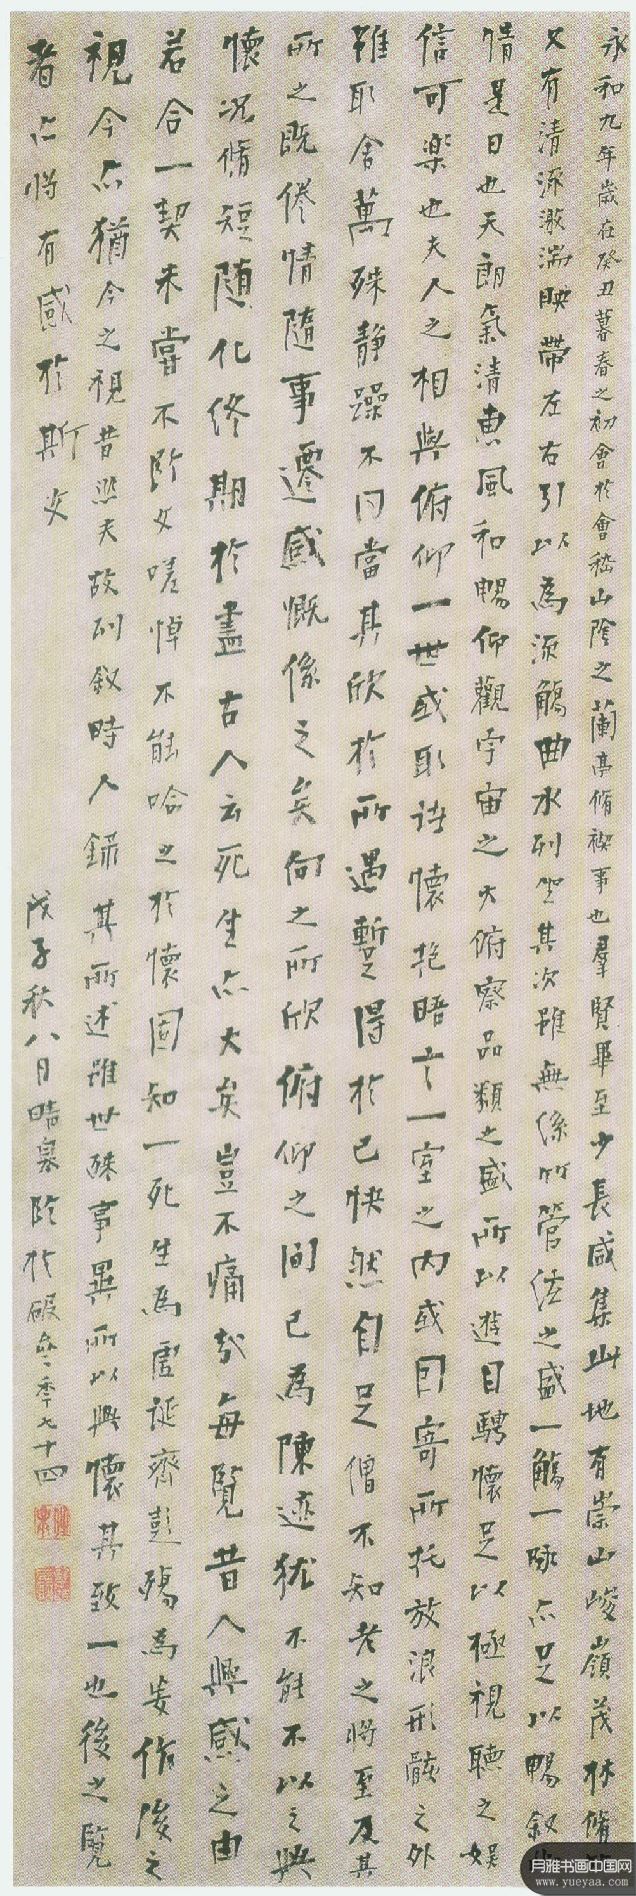 永和九年歲在癸丑暮春之初會於會稽山陰之蘭亭脩禊事也羣賢畢至少長咸集此地有崇山峻嶺茂林脩竹
又有清流激湍映帶左右引以為流觴曲水列坐其次雖無絲竹管弦之盛一觴一詠亦足以暢敘幽
情是日也天朗氣清惠風和暢仰觀宇宙之大俯察品類之盛所以遊目騁懷足以極視聽之娛
信可樂也夫人之相與俯仰一世或取諸懷抱晤言一室之內或因寄所托放浪形骸之外
雖取舍萬殊静躁不同當其欣於所遇暫得於己快然自足不知老之將至及其
所之既倦情隨事遷感慨係之矣向之所欣俯仰之間已為陳迹猶不能不以之興
懷況脩短隨化終期於盡古人云死生亦大矣豈不痛哉每覽昔人興感之由
若合一契未嘗不臨文嗟悼不能喻之於懷固知一死生為虛誕齊彭殤為妄作後之
視今亦猶今之視昔悲夫故列敘時人錄其所述雖世殊事異所以興懷其致一也後之覽
者亦將有感於斯文
戊子秋八月晴泉臨於 年七十四
月雅书画中国网
www.yueyaa.com